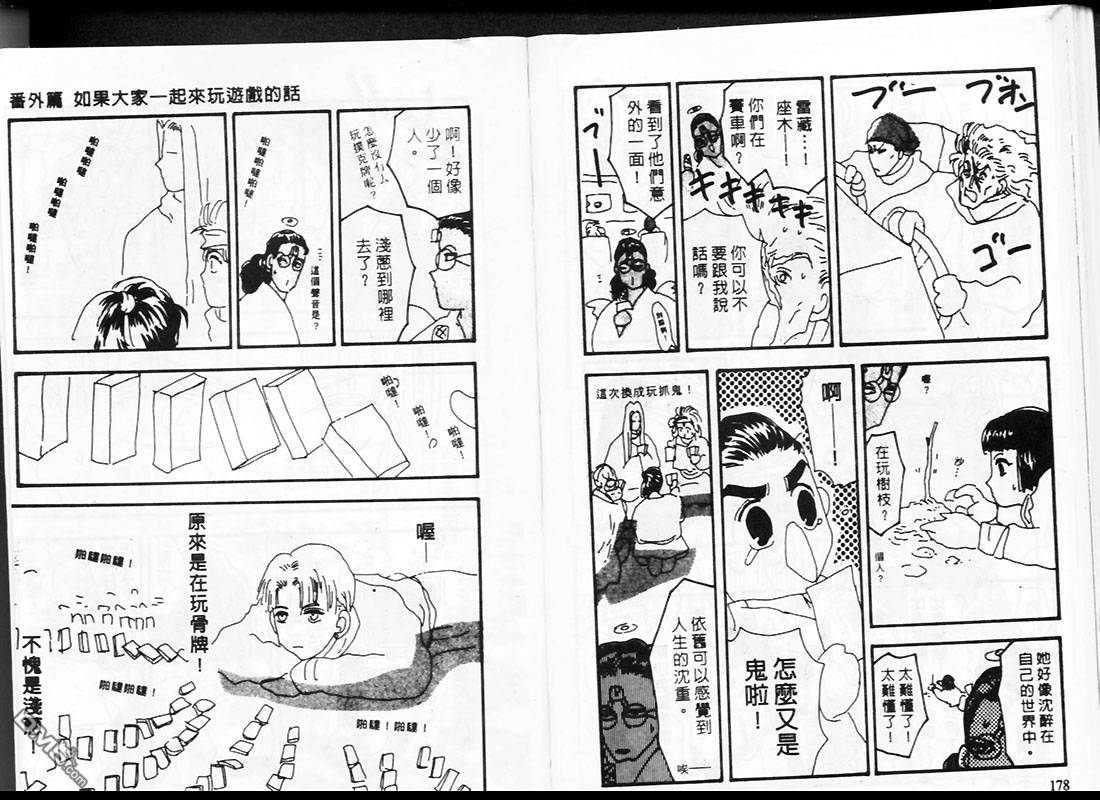 ブー
ブオン
ゴー
雷藏…!
座木—!
你們在
賽車啊?
キキキキキ
你可以不
要跟我說
話嗎?
看到了他們意
外的一面!
ブー
喔?
在玩樹枝?
沙…
個人?
她好像沈醉在
自己的世界中。
太難懂了!
太難懂了!
啊—!
怎麼又是
鬼啦!
這次換成玩抓鬼!
依舊可以感覺到
人生的沈重。
唉——
178
番外篇 如果大家一起來玩遊戲的話
啊!好像
少了一個
人。
怎麼沒什么
玩撲克牌呢?
淺蔥到哪裡
去了?
啪噠啪噠!
…這個聲音是?
啪噠啪噠
啪噠啪噠
啪噠啪噠!
啪噠!
啪噠!
啪噠!
喔—
原來是在玩骨牌!
啪噠啪噠!
啪噠啪噠!
啪噠!啪噠!
不愧是淺蔥!